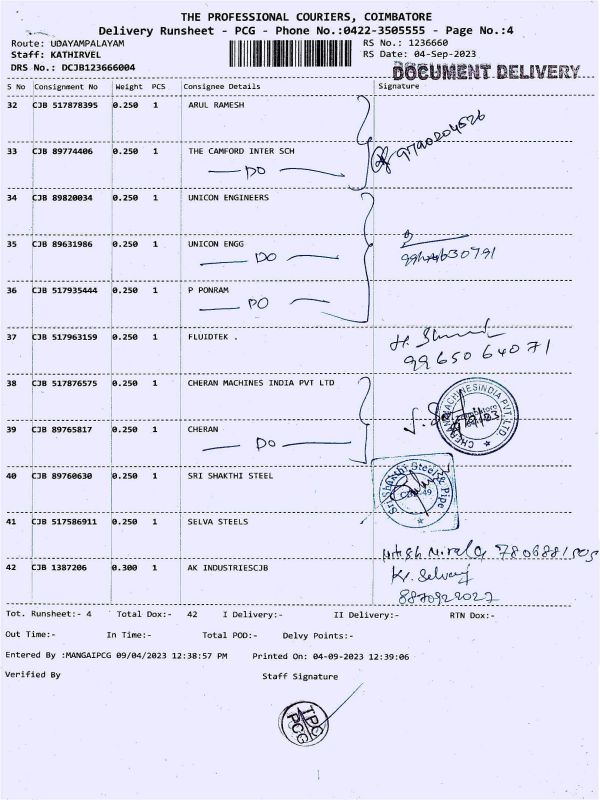 THE PROFESSIONAL COURIERS, COIMBATORE
Delivery Runsheet - PCG - Phone No.:0422-3505555 - Page No.:4
Route: UDAYAMPALAYAM RS No.: 1236660
Staff: KATHIRVEL RS Date: 04-Sep-2023
DRS No.: DCJB123666004 DOCUMENT DELIVERY
S No Consignment No Weight PCS Consignee Details Signature
32 CJB 517878395 0.250 1 ARUL RAMESH
33 CJB 89774406 0.250 1 THE CAMFORD INTER SCH
DO
34 CJB 89820034 0.250 1 UNICON ENGINEERS
35 CJB 89631986 0.250 1 UNICON ENGG
DO
36 CJB 517935444 0.250 1 P PONRAM
DO
37 CJB 517963159 0.250 1 FLUIDTEK .
9965064071
38 CJB 517876575 0.250 1 CHERAN MACHINES INDIA PVT LTD
CHERAN MACHINES INDIA PVT. LTD
39 CJB 89765817 0.250 1 CHERAN
DO
40 CJB 89760630 0.250 1 SRI SHAKTHI STEEL
Sri Shakthi Steel & Pipe
41 CJB 517586911 0.250 1 SELVA STEELS
42 CJB 1387206 0.300 1 AK INDUSTRIESCJB
Kr. Selvaj
8870922027
Tot. Runsheet:- 4 Total Dox:- 42 I Delivery:- II Delivery:- RTN Dox:-
Out Time:- In Time:- Total POD:- Delvy Points:-
Entered By :MANGAIPCG 09/04/2023 12:38:57 PM Printed On: 04-09-2023 12:39:06
Verified By Staff Signature
TPC
PCG